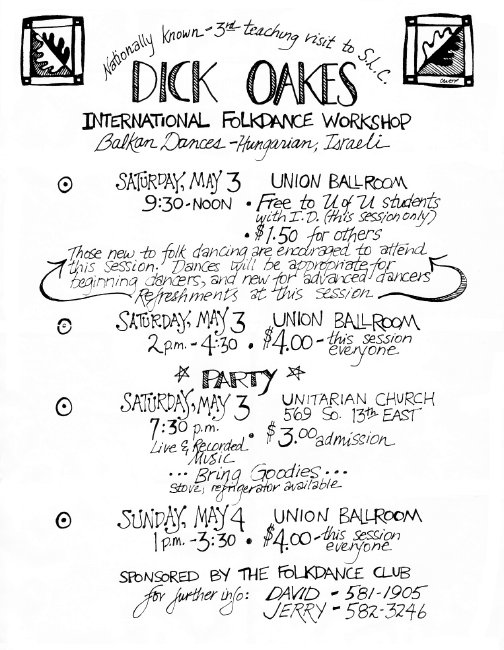 Nationally known - 3rd teaching visit to S.L.C.
DICK OAKES
INTERNATIONAL FOLKDANCE WORKSHOP
Balkan Dances - Hungarian, Israeli
SATURDAY, MAY 3 UNION BALLROOM
9:30-NOON • Free to U of U students
with I.D. (this session only)
• $1.50 for others
Those new to folk dancing are encouraged to attend
this session. Dances will be appropriate for
beginning dancers, and new for advanced dancers
Refreshments at this session
SATURDAY, MAY 3 UNION BALLROOM
2 p.m. - 4:30 • $4.00 - this session
everyone
PARTY
SATURDAY, MAY 3 UNITARIAN CHURCH
569 So. 13th EAST
7:30 p.m. • $3.00 admission
Live & Recorded
Music
... Bring Goodies ...
Stove, refrigerator available
SUNDAY, MAY 4 UNION BALLROOM
1 p.m. - 3:30 • $4.00 - this session
everyone
SPONSORED BY THE FOLKDANCE CLUB
for further info: DAVID - 581-1905
JERRY - 582-3246